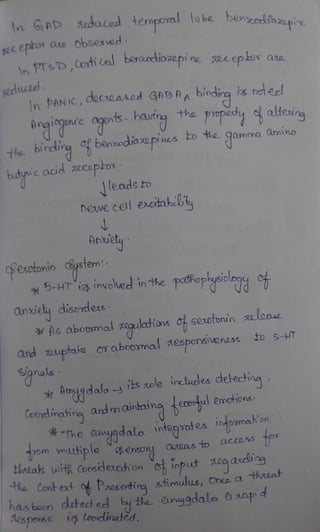 In GAD reduced temporal lobe benzodiazepine
receptor are observed.
In PTSD, Cortical benzodiazepine receptor are
reduced.
In PANIC, decreased GABA A binding is noted
Angiogenic agents - having the property of altering
the binding of benzodiazepines to the gamma amino
butyric acid receptor.
↓ leads to
nerve cell excitability
↓
Anxiety.
Serotonin System:-
* 5-HT is involved in the pathophysiology of
anxiety disorders.
* As abnormal regulations of serotonin release
and reuptake or abnormal responsiveness to 5-HT
Signals.
* Amygdala → its role includes detecting,
Coordinating and maintaing fearful emotions.
* The amygdala integrates information
from multiple sensory areas to access for
threats with Consideration of input regarding
the Context of Preseting stimulus, Once a threat
has been detected by the amygdala a rapid
response is Coordinated.